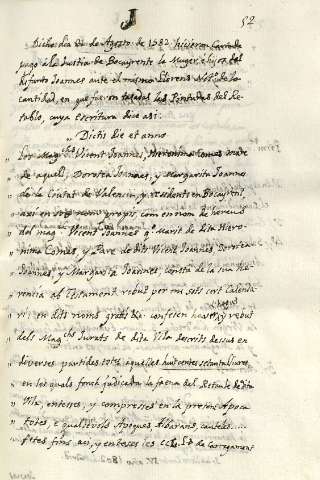 J
52
Dicho dia 24 de Agosto de 1582 hizieron Carta de
pago à la Justicia de Bocayrente la Muger, e hijos del
difunto Joannes ante el mismo Llorens Notº de la
cantidad, en que fueron tasadas las Pinturas del Re-
tablo, cuya escritura dice asi:
" Dictis die et anno
" Los Magchs Vicent Joannes, Hieronima Comes mare
" de aquell, Dorotea Joannes, y Margarita Joannes
" de la Ciutat de Valencia, y residents en Bocayrent,
" axi en noms propis, com en nom de hereus
" del magch Vicent Joannes qº Marit de dita Hiero-
" nima Comes, y Pare de dits Vicent Joannes, Dorotea
" Joannes, y Margarita Joannes, consta de la sua He-
" rencia ab Testament rebut per mi sots cert Calenda-
" ri: en dits noms gratis &a. confesen haver hagut, y rebut
" dels Magchs Jurats de dita Vila descrits dessus en
" diverses partides totes aquelles huitcentes setanta lliures
" en les quals fonch judicada la faena del Retaule de dita
" Vila, enteses, y compreses en la present Apoca
" totes, e qualsevols Apoques, Albarans, cauteles
" fetes fins asi, y enteses les de Carregament